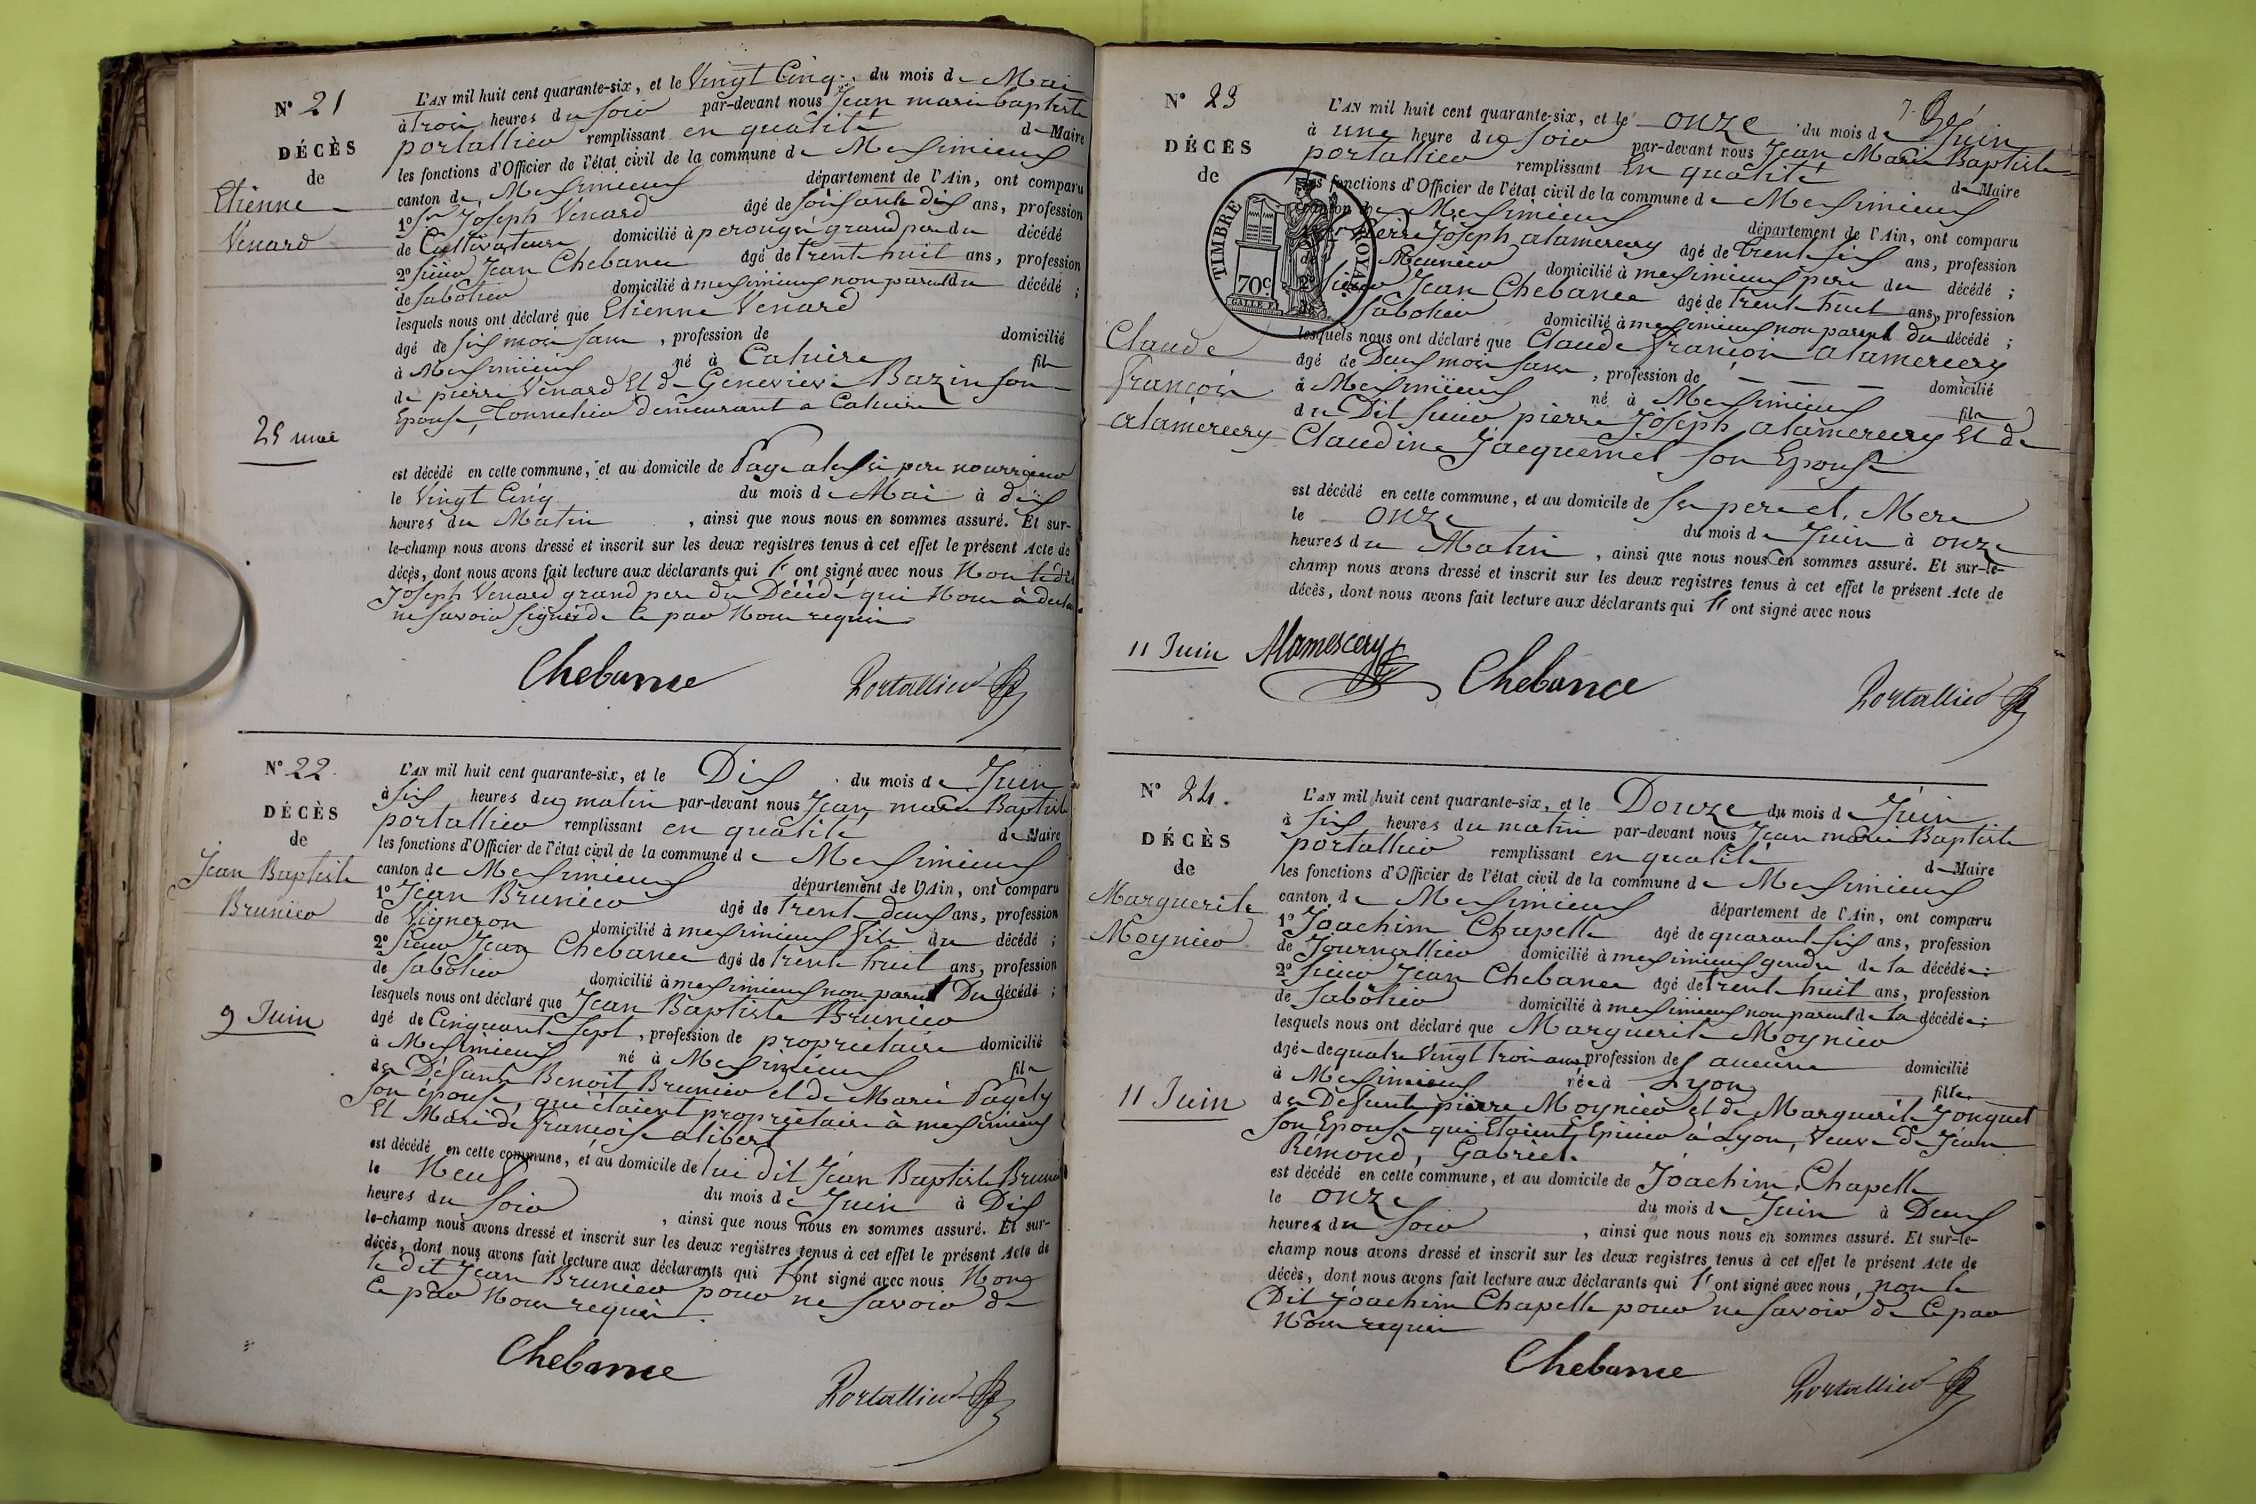 N° 21
DÉCÈS
de
Etienne
Venard
25 mai
L'AN mil huit cent quarante-six, et le Vingt Cinq du mois de Mai
à trois heures du soir par-devant nous Jean marie baptiste
portallier remplissant en qualité de Maire
les fonctions d'Officier de l'état civil de la commune de Meximieux
canton de Meximieux département de l'Ain, ont comparu
1° Sr Joseph Venard âgé de soixante dix ans, profession
de Cultivateur domicilié à perouge grand pere du décédé
2° sieur Jean Chebance âgé de trente huit ans, profession
de sabotier domicilié à meximieux non parent du décédé ;
lesquels nous ont déclaré que Etienne Venard
âgé de six mois sans , profession de domicilié
à Meximieux né à Caluire fils
de pierre Venard Et de Genevieve Bazin son
Epouse, Tonnelier demeurant a Caluire
est décédé en cette commune, et au domicile de Page alexi pere nourricier
le Vingt Cinq du mois de Mai à dix
heures du Matin , ainsi que nous nous en sommes assuré. Et sur-
le-champ nous avons dressé et inscrit sur les deux registres tenus à cet effet le présent Acte de
décès, dont nous avons fait lecture aux déclarants qui l'ont signé avec nous Non ledit
Joseph Venard grand pere du Décédé qui Nous à declaré
ne savoir signer de ce par Nous requis
Chebance Portallier
N° 22
DÉCÈS
de
Jean Baptiste
Brunier
9 Juin
L'AN mil huit cent quarante-six, et le Dix du mois de Juin
à six heures du matin par-devant nous Jean marie Baptiste
portallier remplissant en qualité de Maire
les fonctions d'Officier de l'état civil de la commune de Meximieux
canton de Meximieux département de l'Ain, ont comparu
1° Jean Brunier âgé de trente deux ans, profession
de Vigneron domicilié à meximieux fils du décédé ;
2° sieur Jean Chebance âgé de trente huit ans, profession
de sabotier domicilié à meximieux non parent Du décédé ;
lesquels nous ont déclaré que Jean Baptiste Brunier
âgé de Cinquante sept , profession de propriétaire domicilié
à Meximieux né à Meximieux fils
de Défunts Benoit Brunier et de Marie Pagety
son épouse, qui étaient propriétaire à meximieux
Et Mari de francoise alibert
est décédé en cette commune, et au domicile de lui dit Jean Baptiste Brunier
le Neuf du mois de Juin à Dix
heures du soir , ainsi que nous nous en sommes assuré. Et sur-
le-champ nous avons dressé et inscrit sur les deux registres tenus à cet effet le présent Acte de
décès, dont nous avons fait lecture aux déclarants qui l'ont signé avec nous Non
le dit Jean Brunier pour ne savoir de
ce par Nous requis.
Chebance Portallier
N° 23
DÉCÈS
de
Claude
françois
alamercery
11 Juin
TIMBRE ROYAL
70c
L'AN mil huit cent quarante-six, et le onze du mois de Juin
à une heure du soir par-devant nous Jean Marie Baptiste
portallier remplissant En qualité de Maire
les fonctions d'Officier de l'état civil de la commune de Meximieux
canton de Meximieux département de l'Ain, ont comparu
pierre Joseph alamercery âgé de trente six ans, profession
de Meunier domicilié à meximieux pere du décédé ;
2° sieur Jean Chebance âgé de trente huit ans, profession
de Sabotier domicilié à meximieux non parent du décédé ;
lesquels nous ont déclaré que Claude françois alamercery
âgé de Deux mois sans , profession de domicilié
à Meximieux né à Meximieux fils
du Dit sieur pierre Joseph alamercery Et de
Claudine Jacquemet son Epouse
est décédé en cette commune, et au domicile de ses pere et Mere
le onze du mois de Juin à onze
heures du Matin , ainsi que nous nous en sommes assuré. Et sur-le-
champ nous avons dressé et inscrit sur les deux registres tenus à cet effet le présent Acte de
décès, dont nous avons fait lecture aux déclarants qui l'ont signé avec nous
Alamercery Chebance Portallier
N° 24.
DÉCÈS
de
Marguerite
Moynier
11 Juin
L'AN mil huit cent quarante-six, et le Douze du mois de Juin
à six heures du matin par-devant nous Jean marie Baptiste
portallier remplissant en qualité de Maire
les fonctions d'Officier de l'état civil de la commune de Meximieux
canton de Meximieux département de l'Ain, ont comparu
1° Joachim Chapelle âgé de quarante six ans, profession
de Journallier domicilié à meximieux gendre de la décédée ;
2° sieur Jean Chebance âgé de trente huit ans, profession
de Sabotier domicilié à meximieux non parent de la décédée ;
lesquels nous ont déclaré que Marguerite Moynier
âgée de quatre Vingt trois ans, profession de aucune domicilié
à Meximieux née à Lyon fille
de Defunts pierre Moynier et de Marguerite Jonquet
son Epouse qui Etaient Epicier à Lyon, Veuve de Jean
Rémond, Gabriel.
est décédé en cette commune, et au domicile de Joachim Chapelle
le onze du mois de Juin à Deux
heures du soir , ainsi que nous nous en sommes assuré. Et sur-le-
champ nous avons dressé et inscrit sur les deux registres tenus à cet effet le présent Acte de
décès, dont nous avons fait lecture aux déclarants qui l'ont signé avec nous, non le
Dit Joachim Chapelle pour ne savoir de Ce par
Nous requis
Chebance Portallier